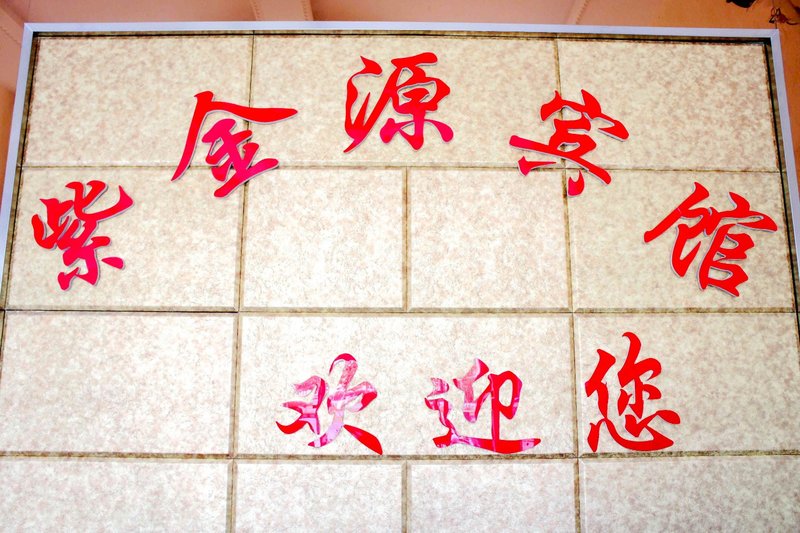 紫金源宾馆
欢迎您